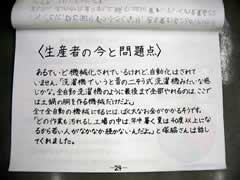 〈生産者の今と問題点〉
あるていど機械化されているけれど、自動化はされて
いません。「洗濯機でいうと昔の二そう式洗濯機みたいな感
じかな。全自動洗濯機のように最後まで全部やれるのは、ここ
では玉鍋の胴を作る機械だけだよ。」
全て全自動の機械にするには、ばく大なお金がかかるそうです。
「どの作業も汚れるし工場の中は、年中暑く夏は40度以上にな
るから若い人がなかなか続かないんだよ。」と塚脇さんは話し
てくれました。
-29-